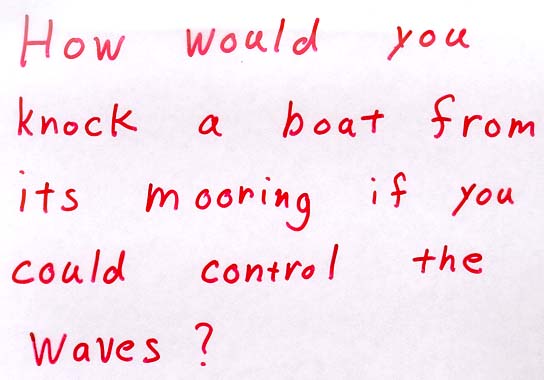 How would you
knock a boat from
its mooring if you
could control the
waves?